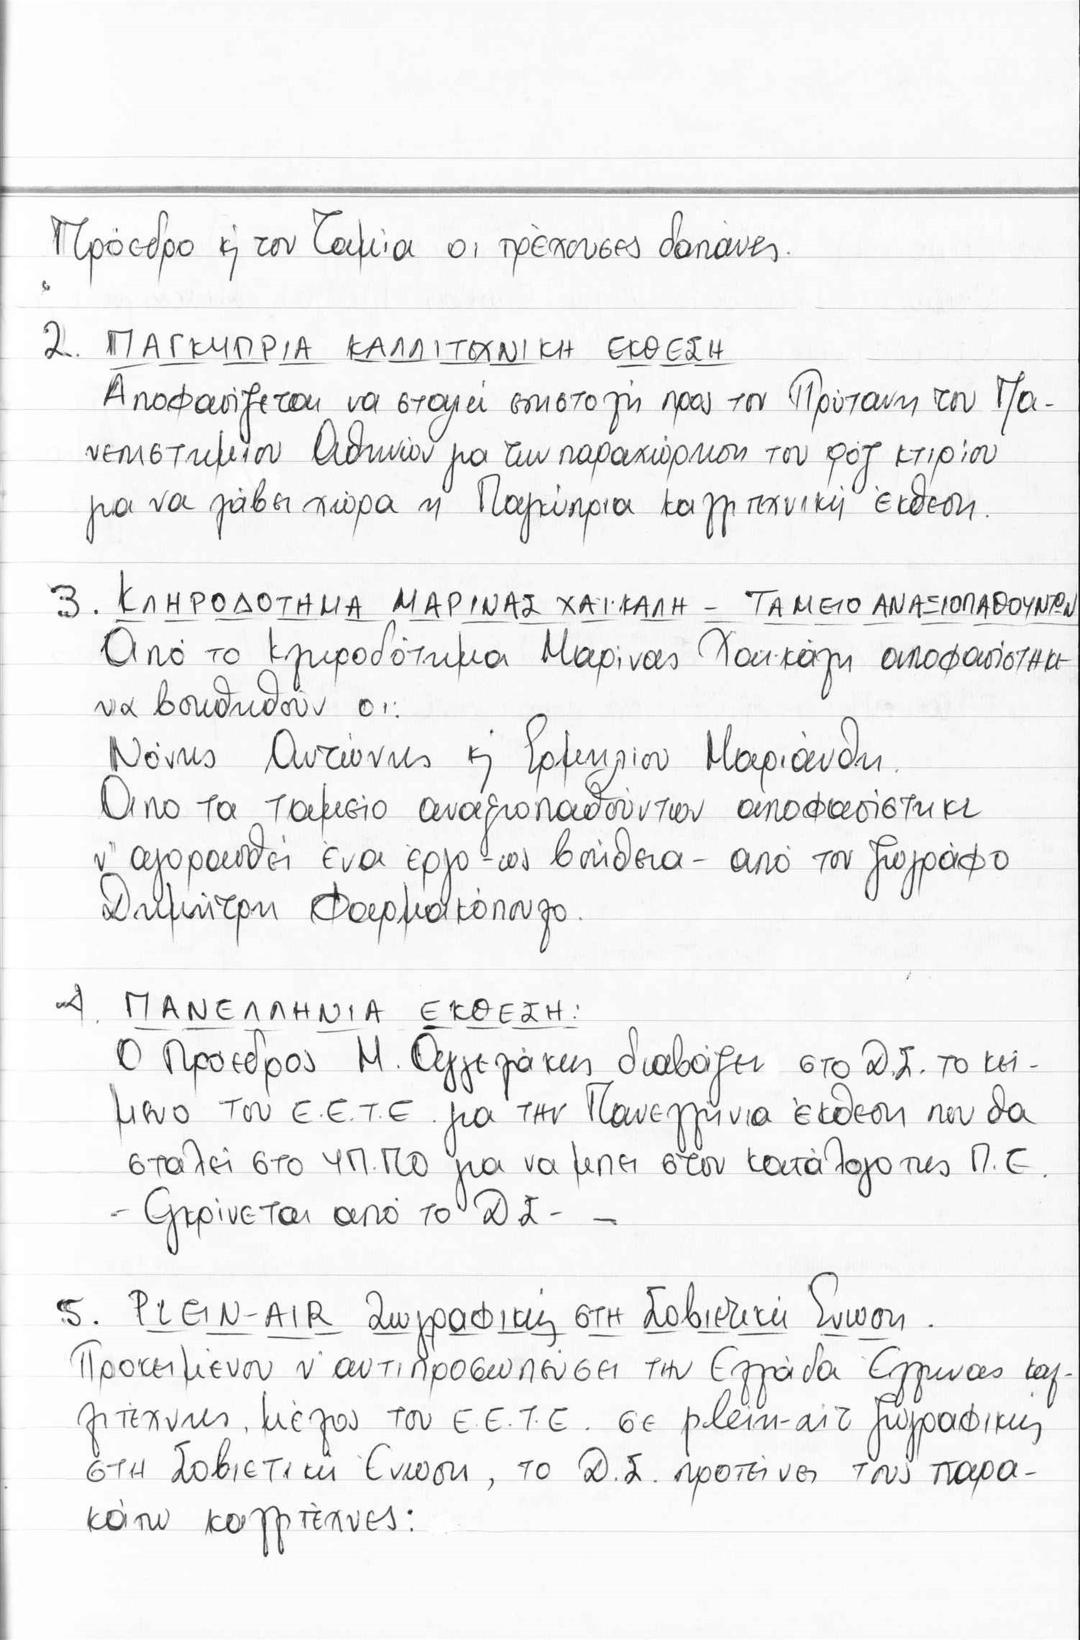 Πρόεδρο κ̓ τον Ταμία οι τρέχουσες δαπάνες.
2. ΠΑΓΚΥΠΡΙΑ ΚΑΛΛΙΤΕΧΝΙΚΗ ΕΚΘΕΣΗ
Αποφασίζεται να σταλεί επιστολή προς τον Πρύτανη του Πα-
νεπιστημίου Αθηνών για την παραχώρηση του κτιρίου
για να λάβει χώρα η Παγκύπρια καλλιτεχνική έκθεση.
3. ΚΛΗΡΟΔΟΤΗΜΑ ΜΑΡΙΝΑΣ ΧΑΪΚΑΛΗ – ΤΑΜΕΙΟ ΑΝΑΞΙΟΠΑΘΟΥΝΤΩΝ
Από το κληροδότημα Μαρίνας Χαϊκάλη αποφασίστηκε
να βοηθηθούν οι:
Νόνης Αντώνης κ̓ Ερμηλίου Μαριάνθη.
Απο τα ταμείο αναξιοπαθούντων αποφασίστηκε
ν' αγορασθεί ένα έργο -ως βοήθεια- από τον ζωγράφο
Δημήτρη Φαρμακόπουλο.
4. ΠΑΝΕΛΛΗΝΙΑ ΕΚΘΕΣΗ:
Ο Πρόεδρος Μ. Αγγελάκης διαβάζει στο Δ.Σ. το κεί-
μενο του Ε.Ε.Τ.Ε. για την Πανελλήνια έκθεση που θα
σταλεί στο ΥΠ.ΠΟ για να μπει στον κατάλογο της Π.Ε.
- Εγκρίνεται από το Δ Σ - –
5. PLEIN-AIR Ζωγραφικής στη Σοβιετική Ένωση.
Προκειμένου ν' αντιπροσωπεύσει την Ελλάδα Έλληνας καλ-
λιτέχνης, μέλος του Ε.Ε.Τ.Ε. σε plein-air ζωγραφικής
στη Σοβιετική Ένωση, το Δ.Σ. προτείνει τους παρα-
κάτω καλλιτέχνες: